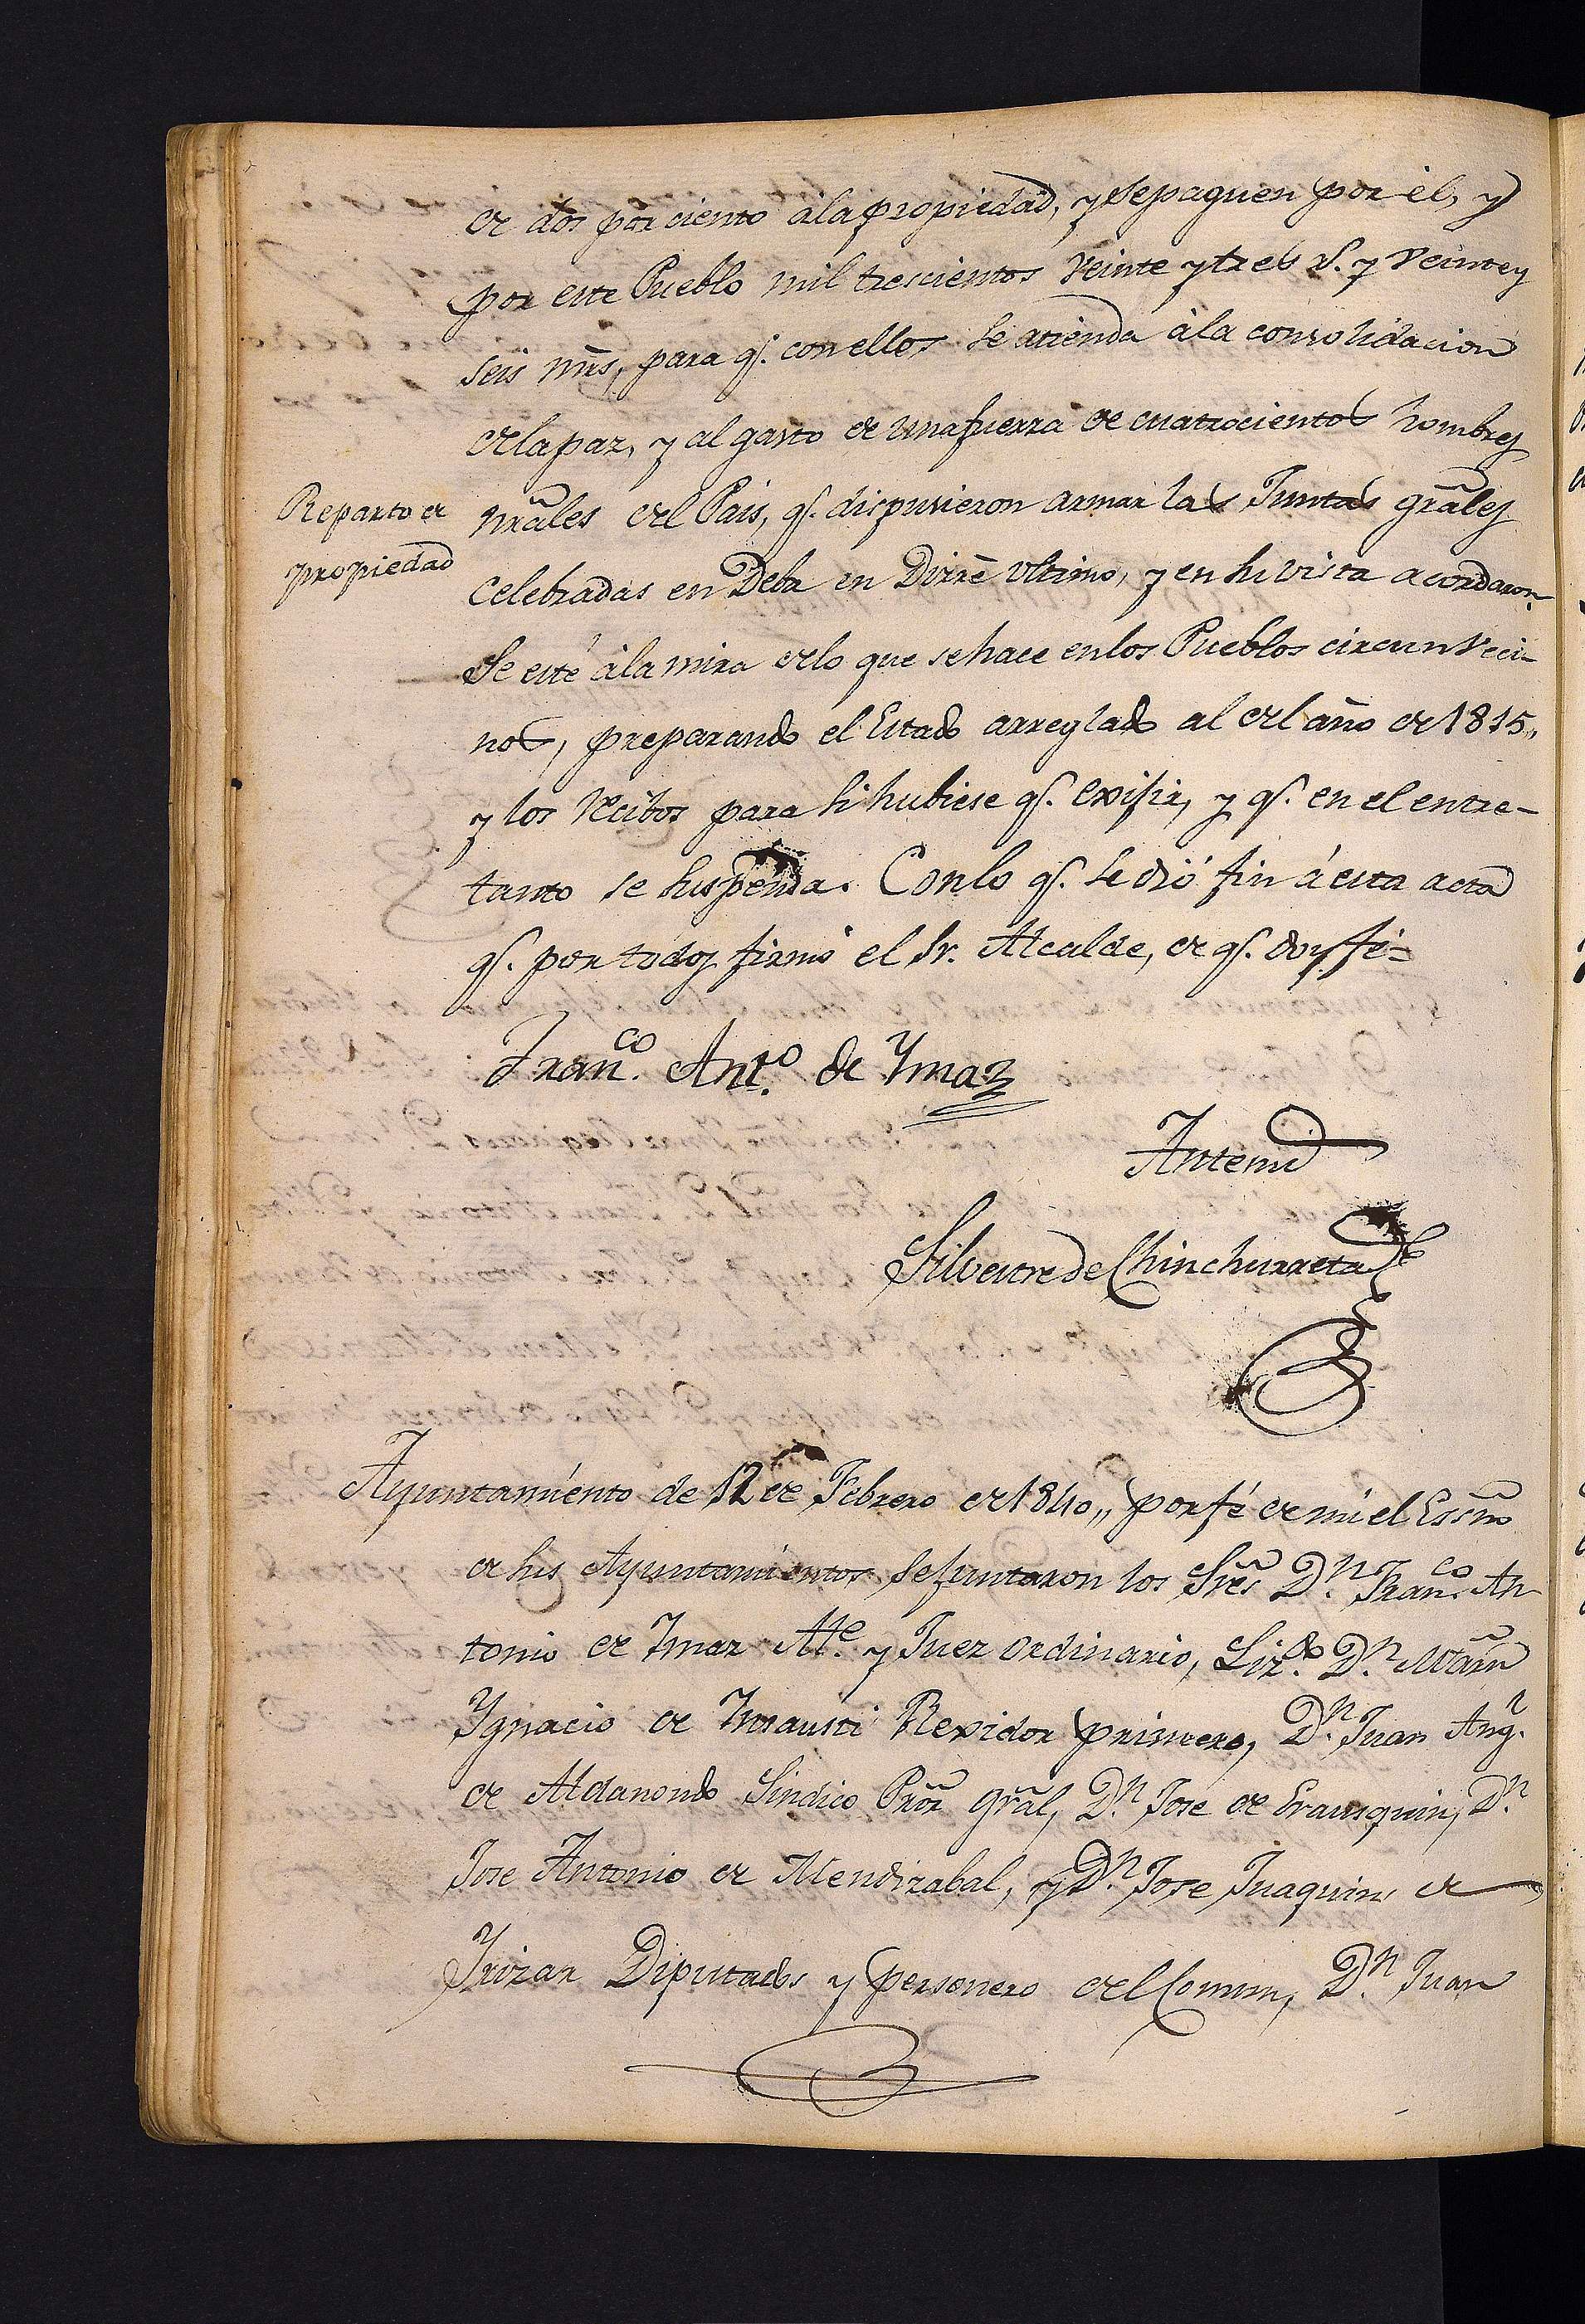 de dos por ciento à la propiedad, y se paguen por èl, y
por este Pueblo mil trescientos veinte y tres rs. y veinte y
seis mrs, para qe. con ellos se atienda à la consolidacion
de la paz, y al gasto de una fuerza de cuatrocientos hombres
Reparto de
propiedad
nrales del Pais, qe. dispusieron armar las Juntas grales
celebradas en Deba en Dizre ultimo, y en su vista acordaron
Se esté à la mira de lo que se hace en los Pueblos circunveci-
nos, preparando el Estado arreglado al del año de 1815,,
y los recibos para si hubiese qe. exijir, y qe. en el entre-
tanto se suspenda. Con lo qe. se dió fin á esta acta
qe. por todos firmó el Sr. Alcalde, de qe. doy fé=
Franco. Anto. de Ymaz
Antemi
Silvestre de Chinchurreta
Ayuntamiento de 12 de Febrero de 1840,, por fé de mi el Essno
de sus Ayuntamientos se juntaron los Sres Dn. Franco. An
tonio de Ymaz Alle. y Juez ordinario, Lizdo. Dn. Marn
Ygnacio de Insausti Rexidor primero, Dn. Juan Angl.
de Aldanondo Sindico Pror Gral, Dn. Jose de Erausquin, Dn.
Jose Antonio de Mendizabal, y Dn. Jose Juaquin de
Irizar Diputados y personero del Comun, Dn. Juan